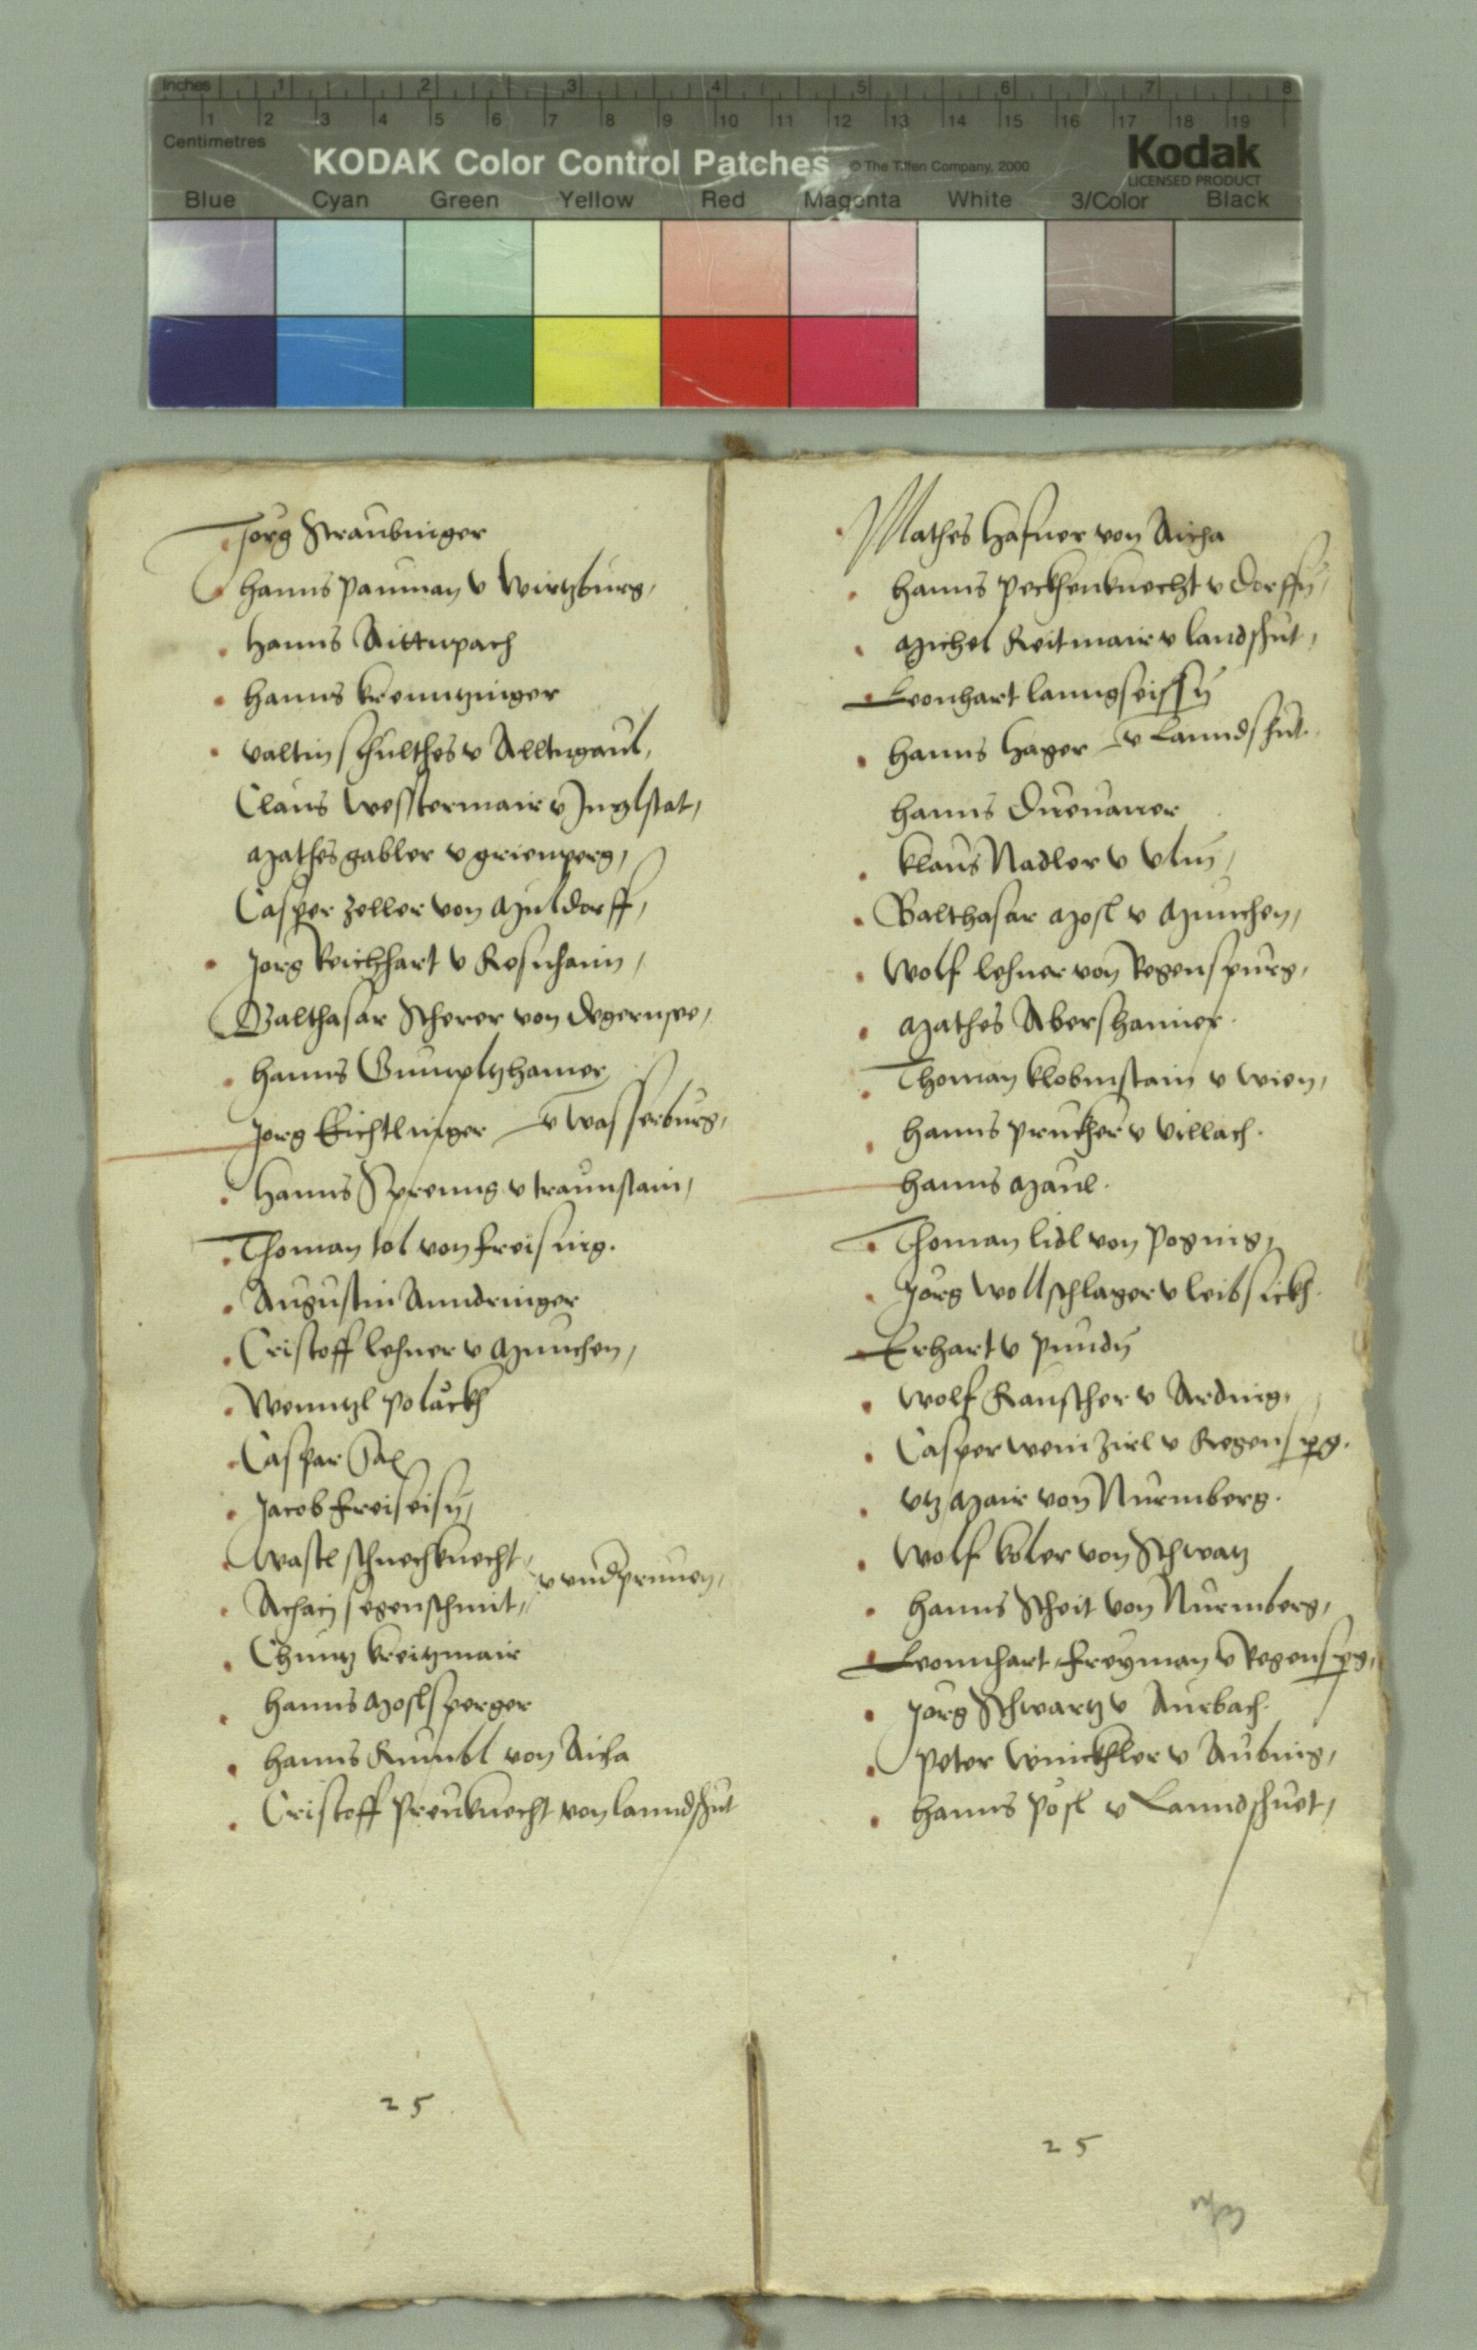 Inches 1 2 3 4 5 6 7 8
1 2 3 4 5 6 7 8 9 10 11 12 13 14 15 16 17 18 19
Centimetres
KODAK Color Control Patches © The Tiffen Company, 2000 Kodak
LICENSED PRODUCT
Blue Cyan Green Yellow Red Magenta White 3/Color Black
Jorg Straubinger
hanns pauman v wirtzburg,
hanns Aittnpach
hanns kremntzinger
valtin schulthes v Alltngaul,
Claus Westermair v Inglstat,
Mathes gabler v grienperg,
Casper zeller von Muldorff,
Jorg Reichhart v Rosnhaim,
Balthasar Scherer von degernsee,
hanns Gumpltzhamer
Jorg Eichtlinger v wasserburg,
hanns Sprenng v traunstain,
Thoman lol von freising.
Augustin Anndringer
Cristoff lehner v Munchen,
Wenntzl polackh
Caspar Sax
Jacob freiseisn,
wastl schnechknecht,
v vndprunen,
Achatz segenschmit,
Chuntz kreitzmair
hanns Moslsperger
hanns Kumbl von Aicha
Cristoff preuknecht von lanndshut
25
Mathes hafner von Aicha
hanns peckhenknecht v dorffn,
Michel Reitmair v landshut,
Leonhart lanngseissn
hanns hager v Lanndshut.
hanns
klaus Nadler v Ulm,
Balthasar Mosl v Munchen,
Wolf lehner von Regenspurg,
Mathes Abershamer.
Thoman klobmstain v wien,
hanns prukher v villach.
hanns Maul.
Thoman lidl von pognig,
Jorg wollschlager v leibsickh.
Erhart v pundn
Wolf Rauscher v Arding,
Casper weinzirl v Regenspg.
Utz Mair von Nurmberg.
Wolf koler von Schwatz
hanns Scheit von Nurmberg,
Leonnhart freyman v Regenspg,
Jorg Schwartz v Aurbach.
peter winckhler v Aubnig,
hanns posl v Lanndshuet,
25